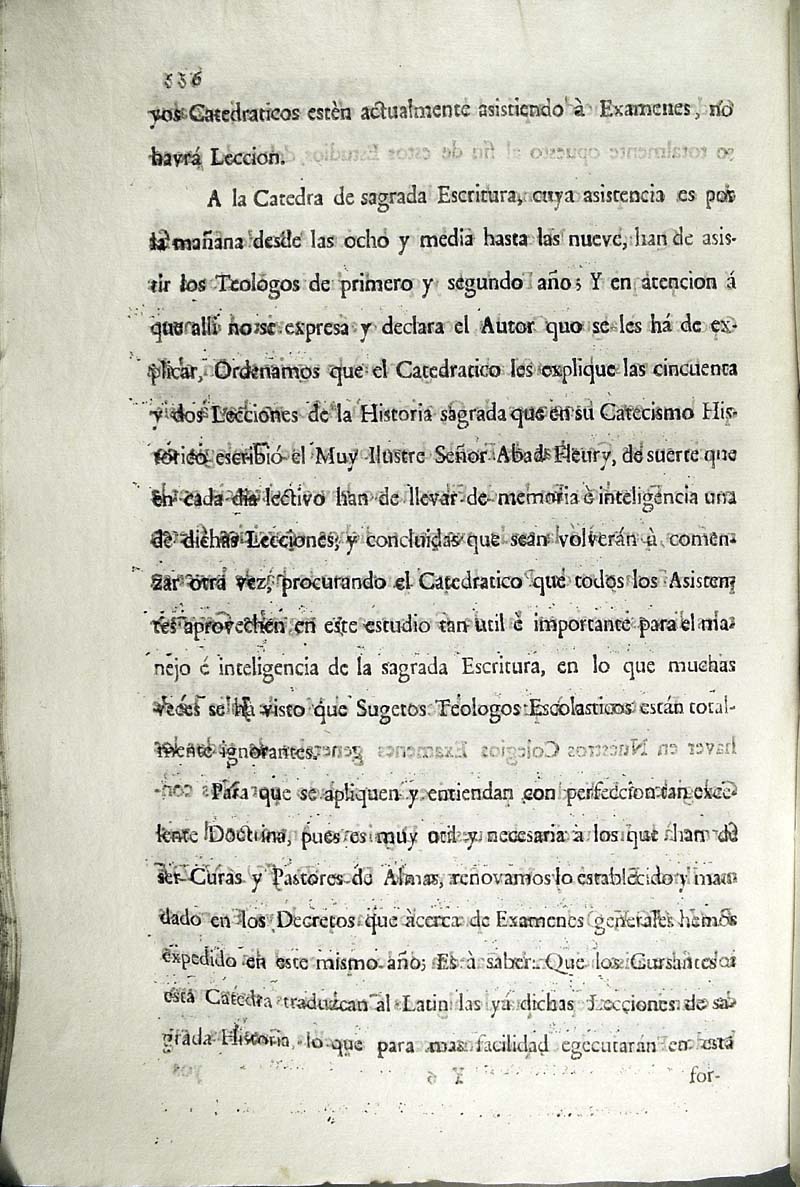 336
yos Catedraticos estèn actualmente asistiendo à Examenes, no
havrá Leccion.
A la Catedra de sagrada Escritura, cuya asistencia es por
la mañana desde las ocho y media hasta las nueve, han de asis-
tir los Teologos de primero y segundo año; Y en atencion á
que alli no se expresa y declara el Autor quo se les há de ex-
plicar, Ordenamos que el Catedratico les explique las cincuenta
y dos Lecciones de la Historia sagrada que en su Catecismo His-
tórico escribió el Muy Ilustre Señor Abad Fleury, de suerte que
en cada dia lectivo han de llevar de memoria è inteligencia una
de dichas Lecciones; y concluidas que sean volverán à comen-
zar otra vez, procurando el Catedratico que todos los Asisten-
tes aprovechen en este estudio tan util è importante para el ma-
nejo é inteligencia de la sagrada Escritura, en lo que muchas
veces se há visto que Sugetos Teologos Escolasticos están total-
mente ignorantes.
Para que se apliquen y entiendan con perfeccion tan exce-
lente Doctrina, pues es muy util y necesaria à los que han de
ser Curas y Pastores de Almas, renovamos lo establecido y man-
dado en los Decretos que àcerca de Examenes generales hemos
expedido en este mismo año; Es à saber: Que los Cursantes à
esta Catedra traduzcan al Latin las yá dichas Lecciones de sa-
grada Historia, lo que para mas facilidad egecutarán en esta
for-